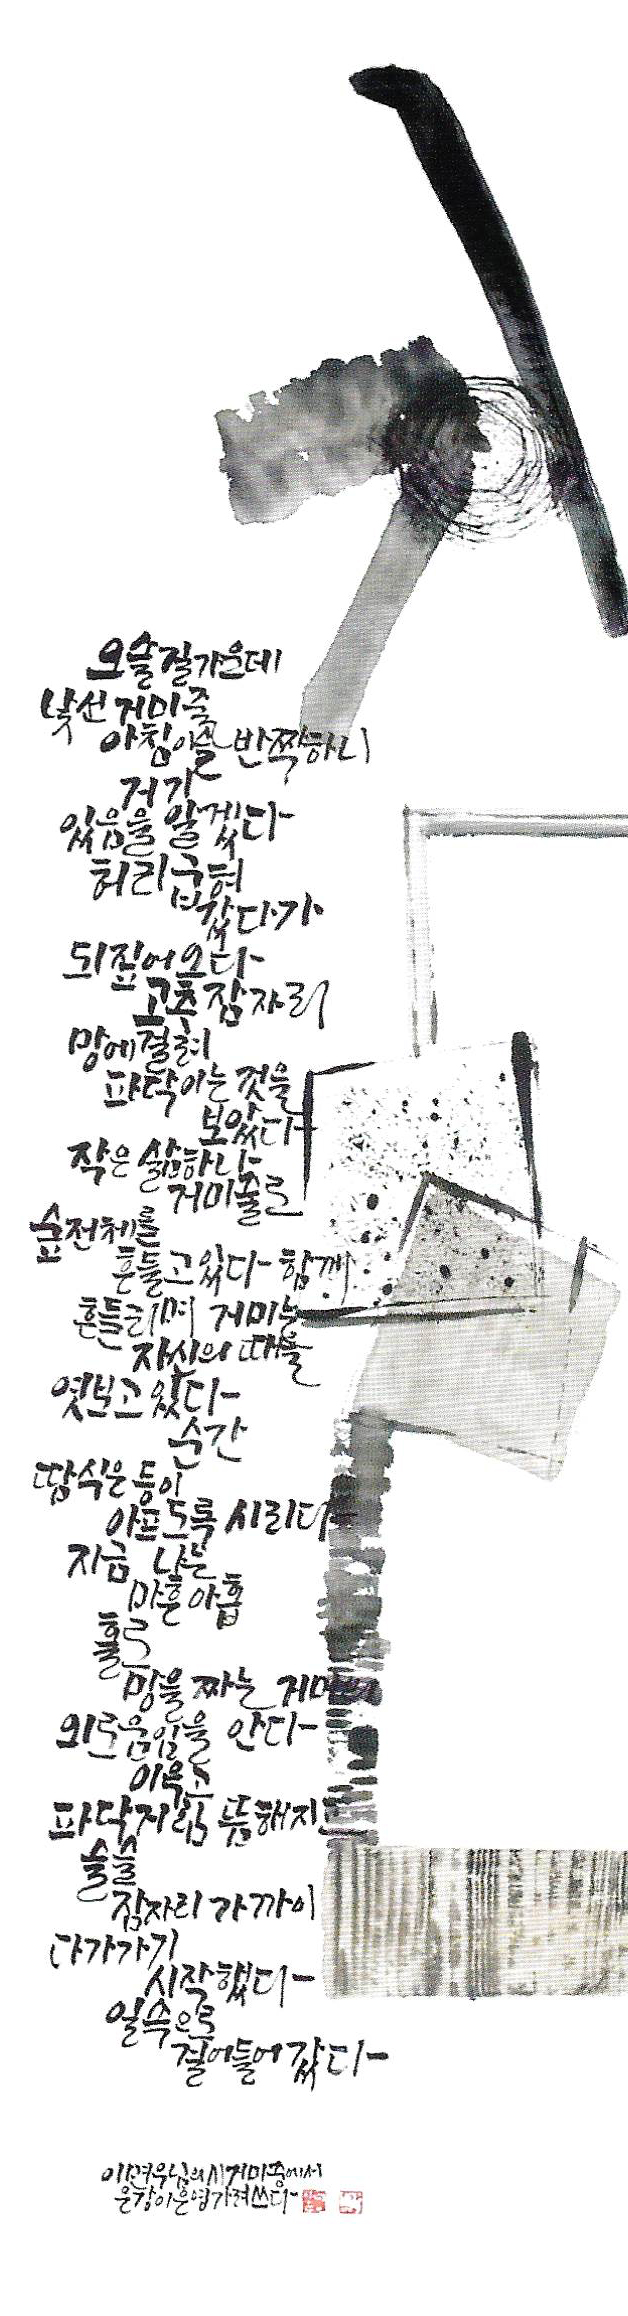 오솔길 가운데
낯선 거미줄
아침이슬 반짝하니
거기
있음을 알겠다
허리 굽혀
갔다가
되짚어오다
고추잠자리
망에 걸려
파닥이는 것을
보았다
작은 삶 하나
거미줄로
숲 전체를
흔들고 있다 함께
흔들리며 거미는
자신의 때를
엿보고 있다
순간
땀 식은 등이
아프도록 시리다
지금 나는
마흔아홉
홀로
망을 짜는 거미
외로움임을 안다
이윽고
파닥거림 뜸해지고
슬슬
잠자리 가까이
다가가기
시작했다
일순으로
걸어들어갔다
이면우님의 시 거미 중에서
은향 이은영 가려 쓰다